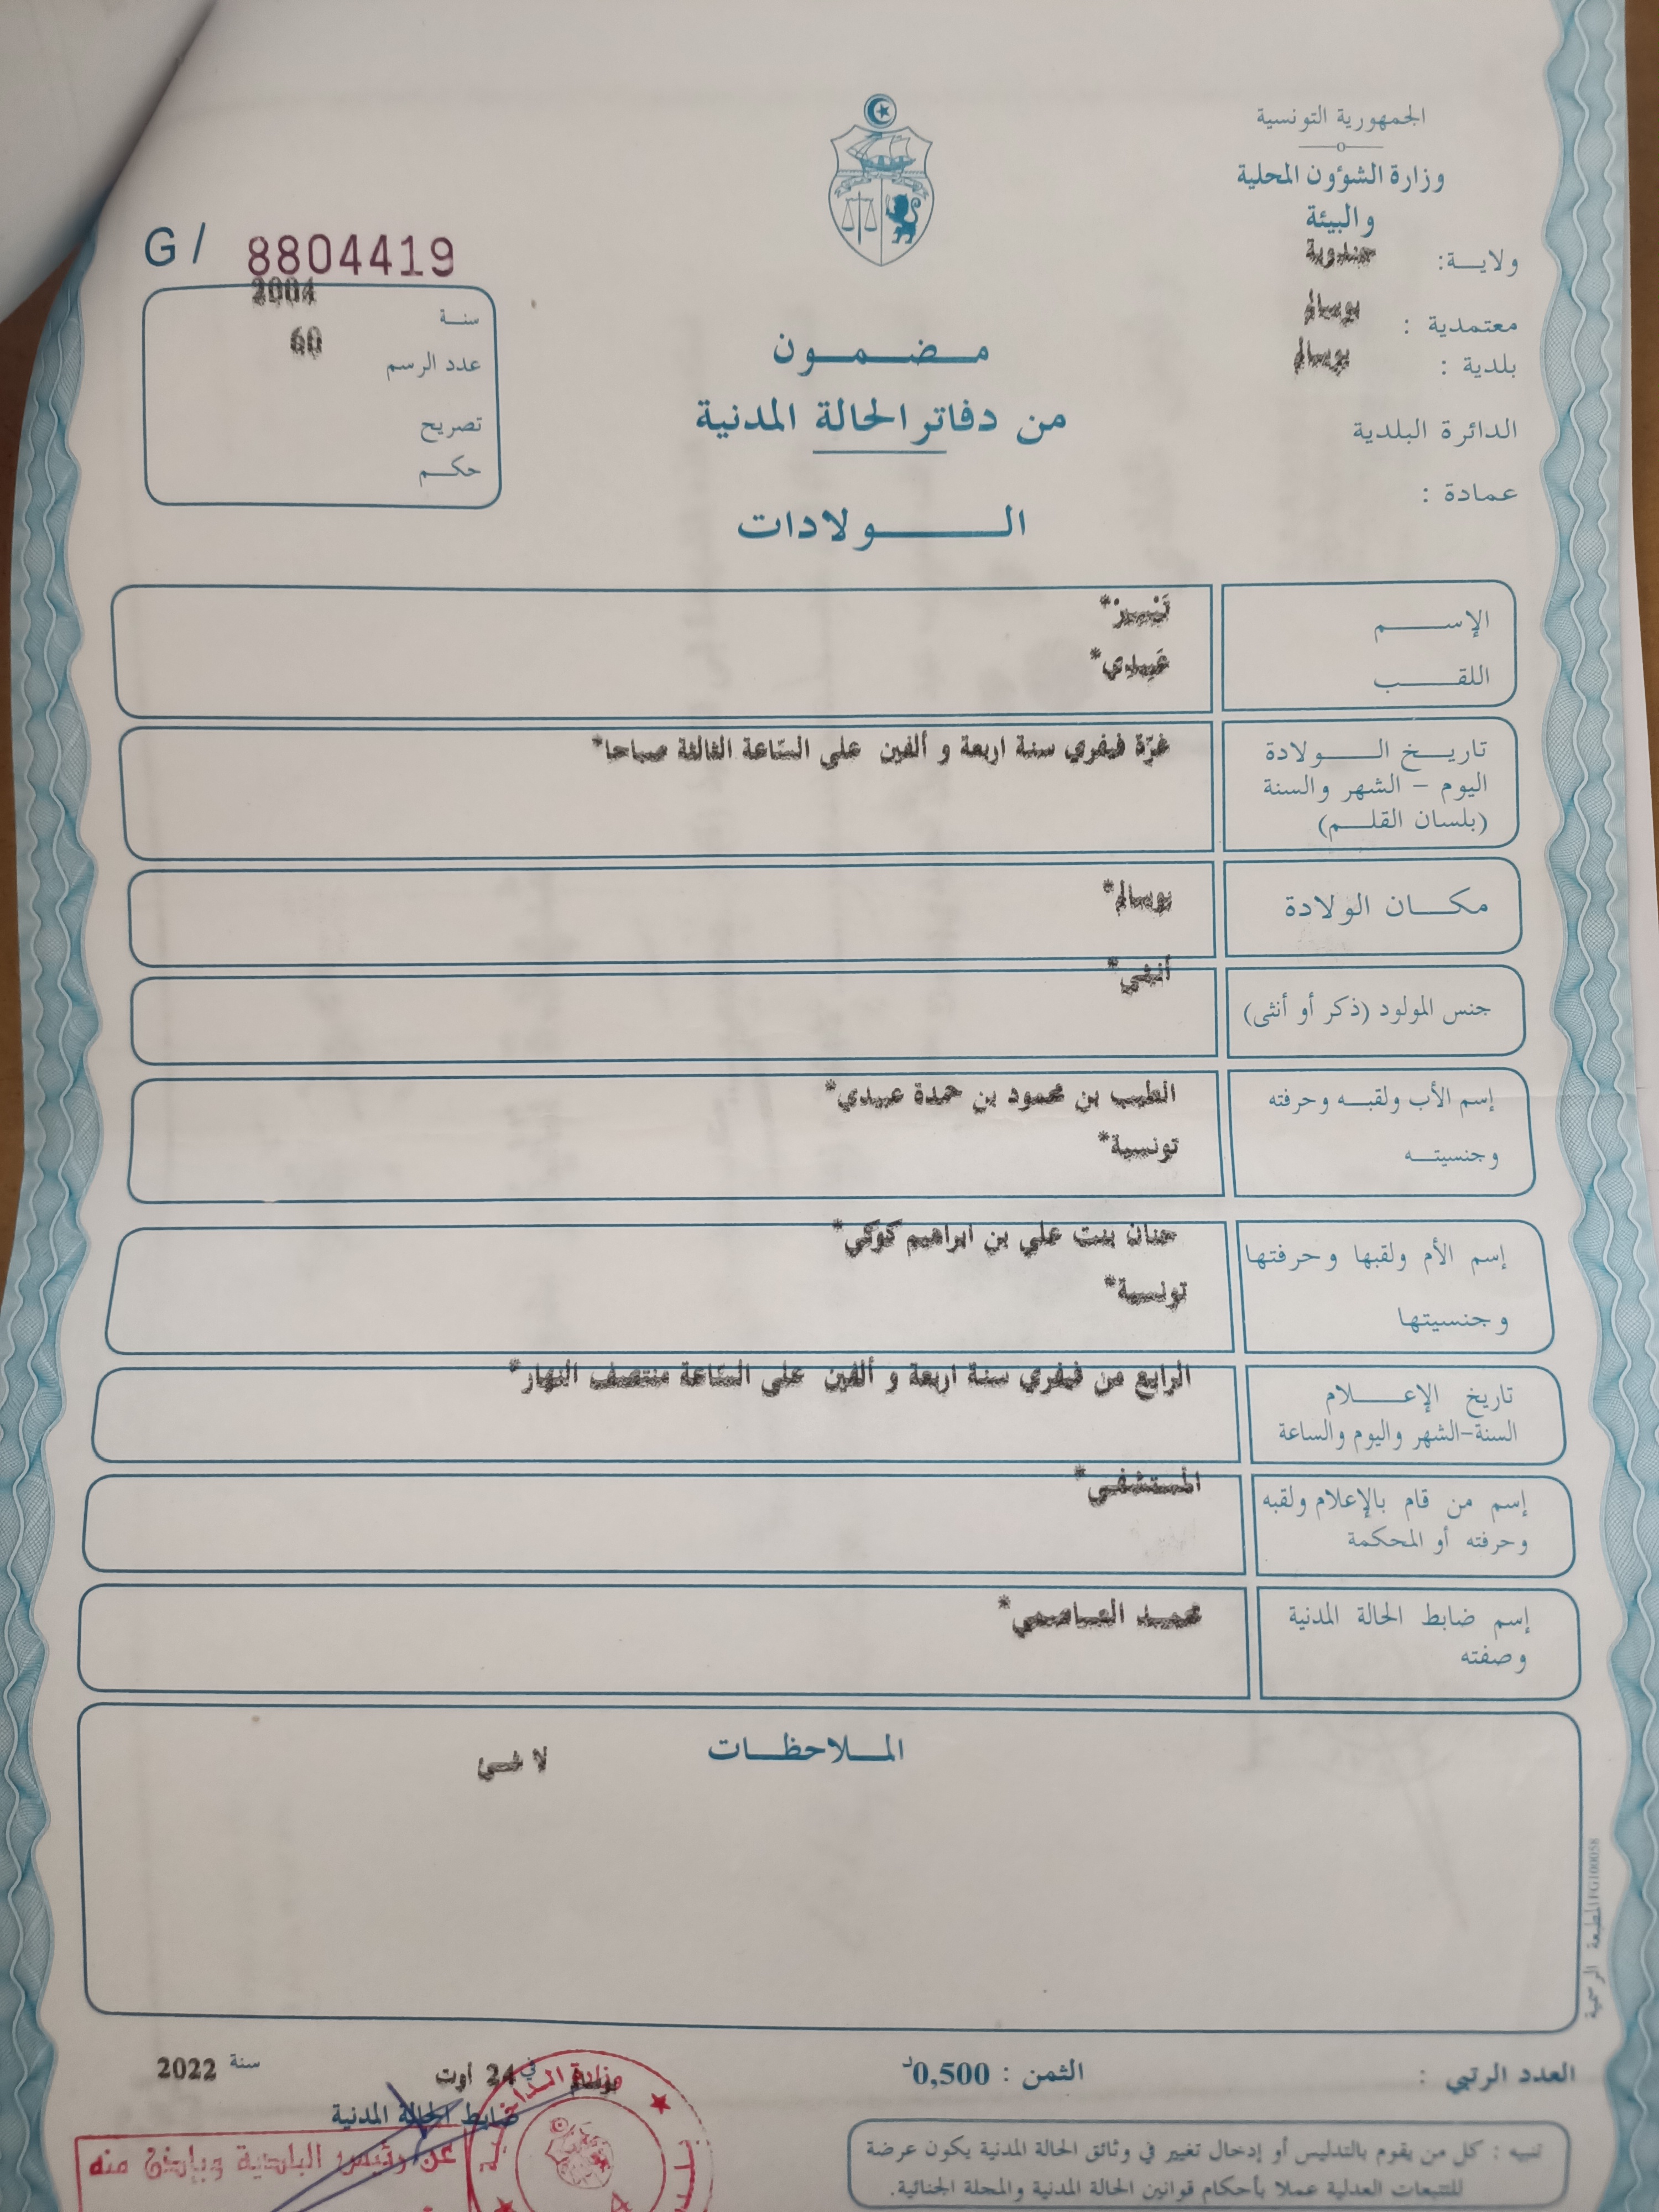 الجمهورية التونسية
وزارة الشؤون المحلية
والبيئة
ولايـــة: جندوبة
معتمدية : بوسالم
بلدية : بوسالم
الدائرة البلدية
عمادة :
G / 8804419
سنــة 2004
عدد الرسم 60
تصريح
حكــم
مـضـمـون
من دفاتر الحالة المدنية
الـولادات
الإســـم
اللقـــب عبيدي*
تاريـخ الـولادة غرّة فيفري سنة اربعة و ألفين على السّاعة الثالثة صباحا*
اليوم – الشهر والسنة
(بلسان القلـم)
مكـان الولادة بوسالم*
جنس المولود (ذكر أو أنثى) أنثى*
إسم الأب ولقبـه وحرفته الطيب بن محمود بن حمدة عبيدي*
وجنسيتـه تونسية*
إسم الأم ولقبها وحرفتها حنان بنت علي بن ابراهيم كوكي*
وجنسيتها تونسية*
تاريخ الإعــلام الرابع من فيفري سنة اربعة و ألفين على السّاعة منتصف النهار*
السنة-الشهر واليوم والساعة
إسم من قام بالإعلام ولقبه المستشفى*
وحرفته أو المحكمة
إسم ضابط الحالة المدنية محمد العاصمي*
وصفته
المـلاحظـات
لا شئ
المطبعة الرسمية FG100058
العدد الرتبي :
الثمن : 0,500د
بوسالم في 24 أوت سنة 2022
ضابط الحالة المدنية
وزارة الداخلية
عن رئيس البلدية وبإذن منه
تنبيه : كل من يقوم بالتدليس أو إدخال تغيير في وثائق الحالة المدنية يكون عرضة
للتتبعات العدلية عملا بأحكام قوانين الحالة المدنية والمجلة الجنائية.